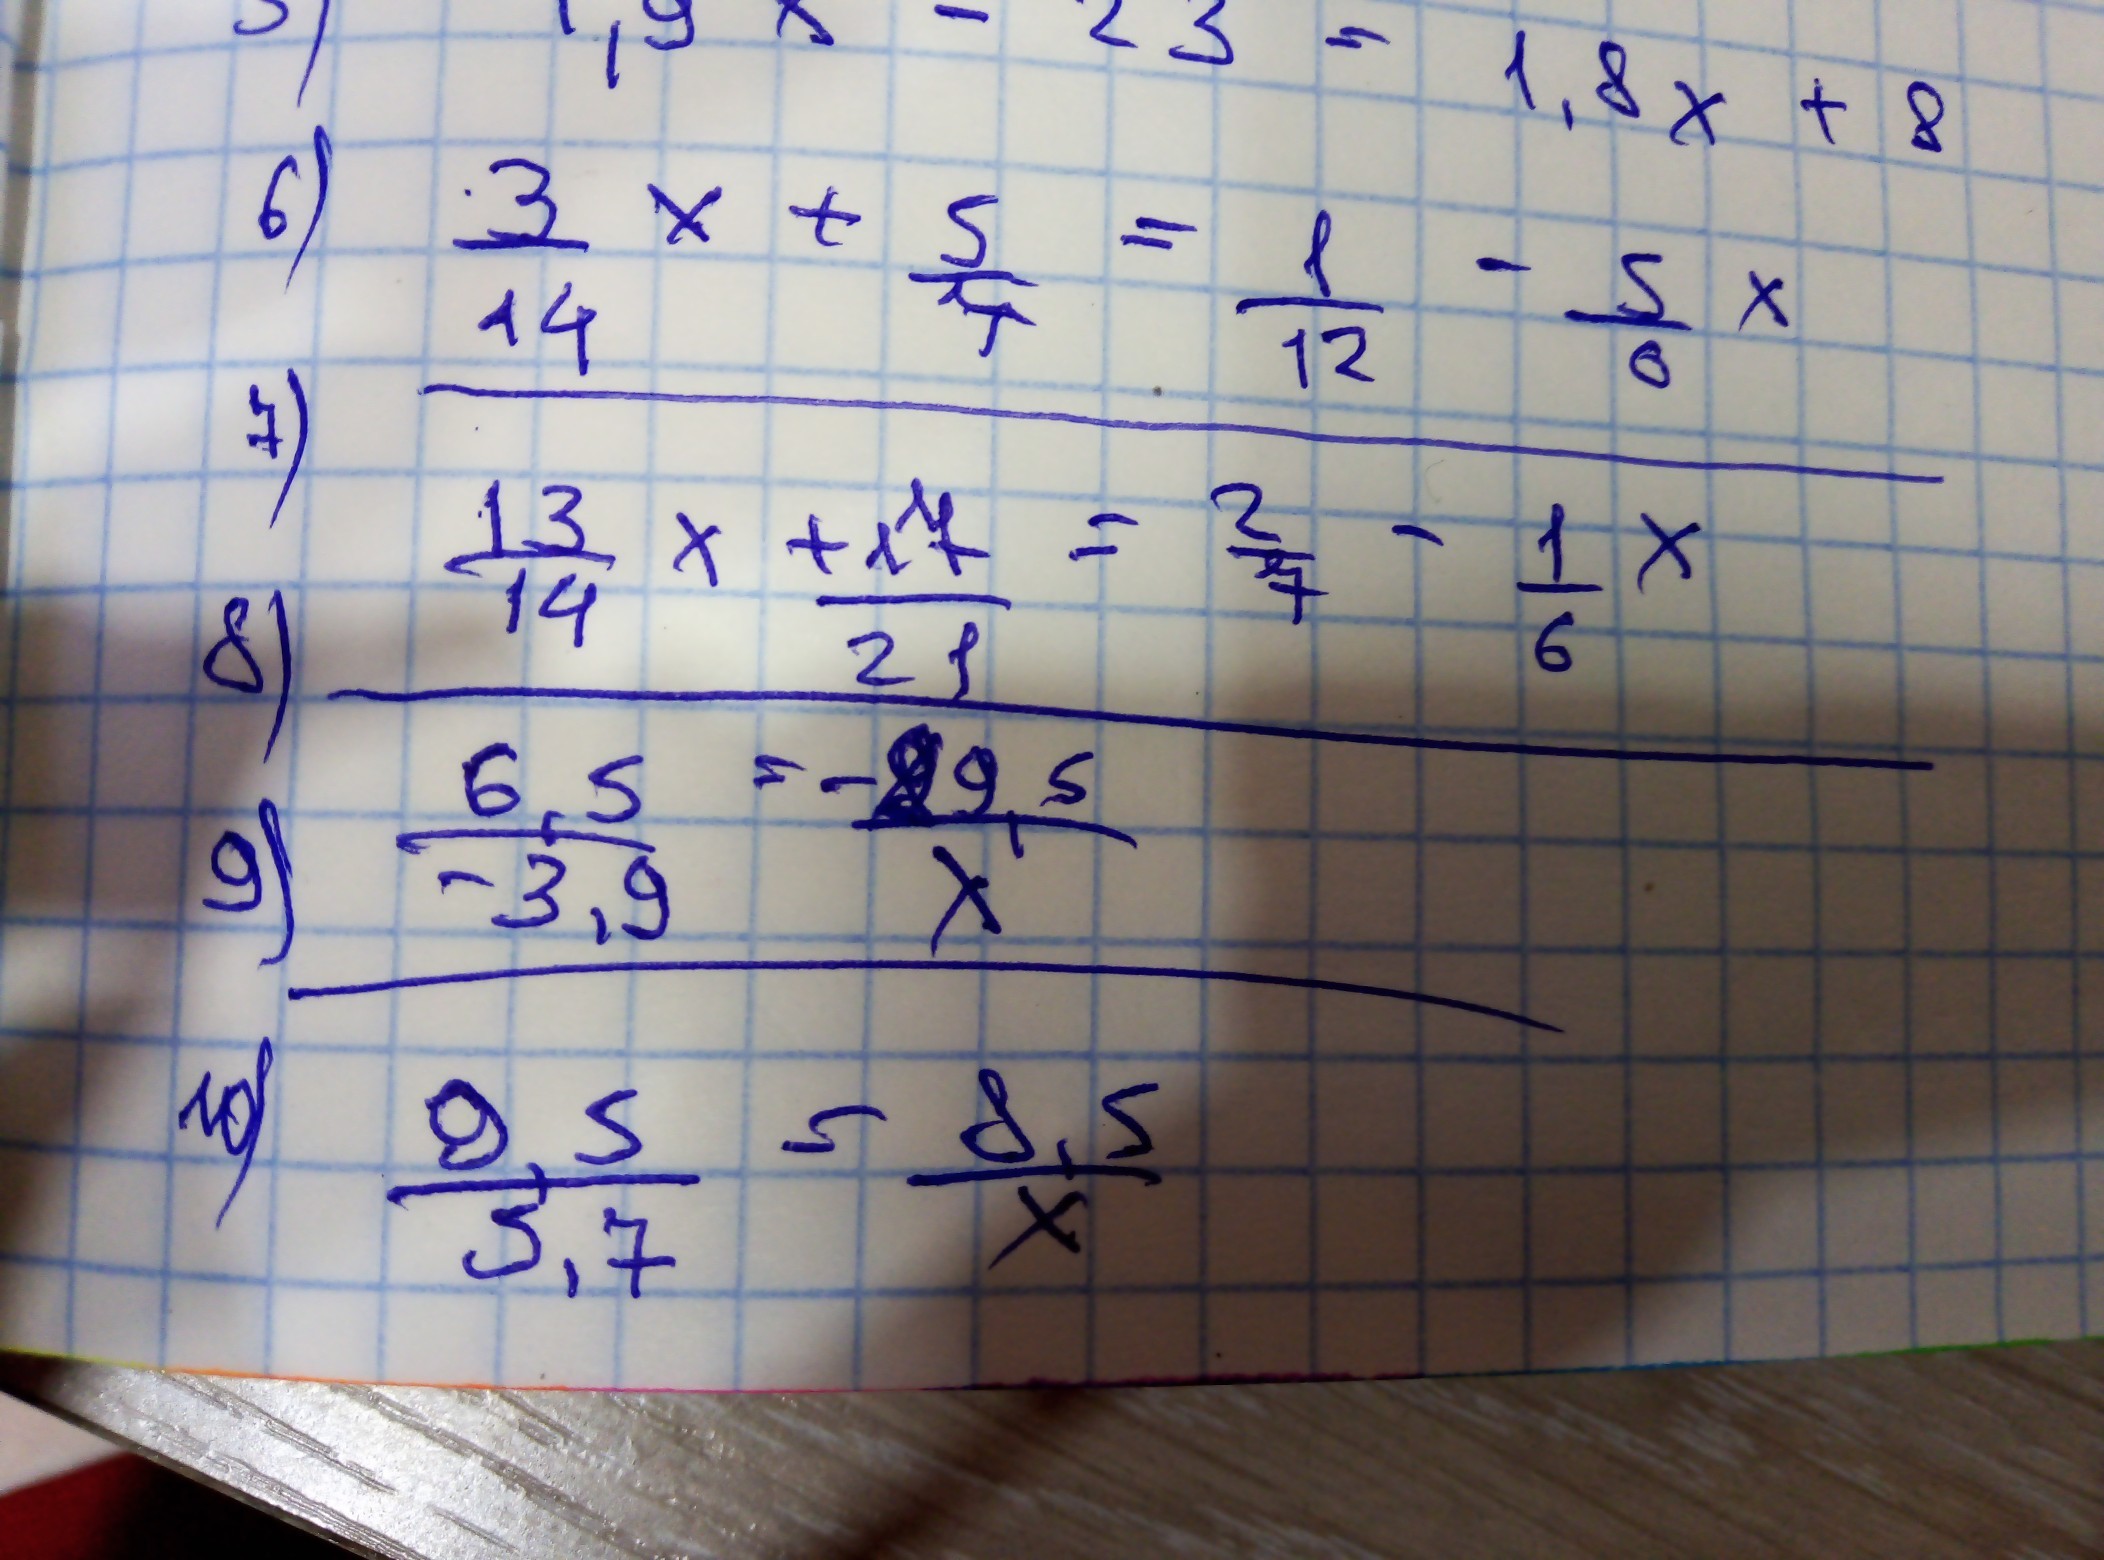 1,9x - 23 = 1,8x + 8
6) 3/14 x + 5/7 = 1/12 - 5/8 x
7)
13/14 x + 17/21 = 2/7 - 1/6 x
8)
6,5/-3,9 = 9,5/x
9)
10) 9,5/5,7 = 8,5/x